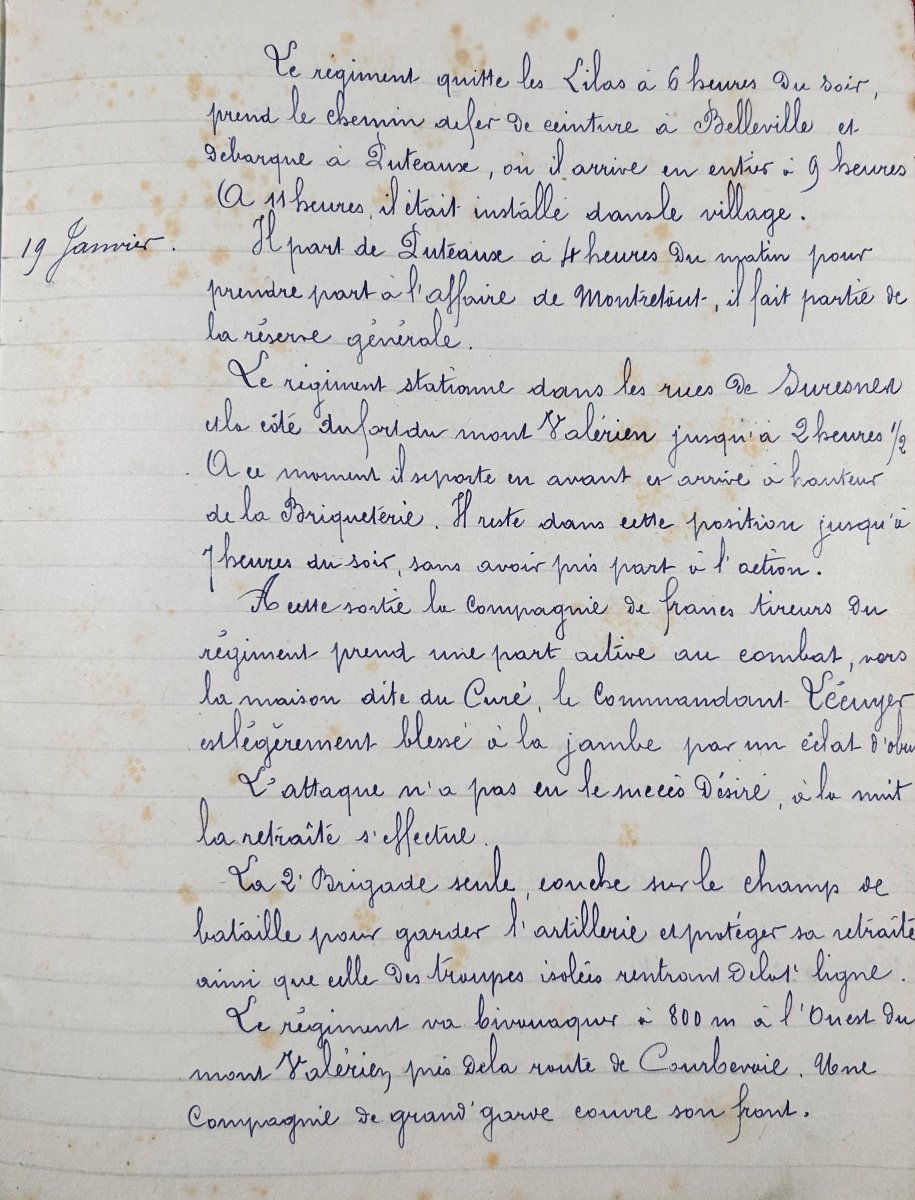 Le régiment quitte les Lilas à 6 heures du soir,
prend le chemin de fer de ceinture à Belleville et
débarque à Puteaux, où il arrive en entier à 9 heures
A 11 heures, il était installé dans le village.
19 Janvier. Il part de Putéaux à 4 heures du matin pour
prendre part à l'affaire de Montretout, il fait partie de
la réserve générale.
Le régiment stationne dans les rues de Suresnes
et la côté du fort du mont Valérien jusqu'à 2 heures 1/2
A ce moment il se porte en avant et arrive à hauteur
de la Briquetérie. Il reste dans cette position jusqu'à
7 heures du soir, sans avoir pris part à l'action.
A cette sortie la compagnie de francs tireurs du
régiment prend une part active au combat, vers
la maison dite du Curé, le Commandant Lécuyer
est légèrement blessé à la jambe par un éclat d'obus
L'attaque n'a pas eu le succès désiré, à la nuit
la retraîte s'effectue.
La 2e Brigade seule, couche sur le champ de
bataille pour garder l'artillerie et protéger sa retraîte
ainsi que celle des troupes isolées rentrant de la 1e ligne.
Le régiment va bivouaquer à 800 m à l'Ouest du
mont Valérien, près de la route de Courbevoie. Une
compagnie de grand'garde couvre son front.